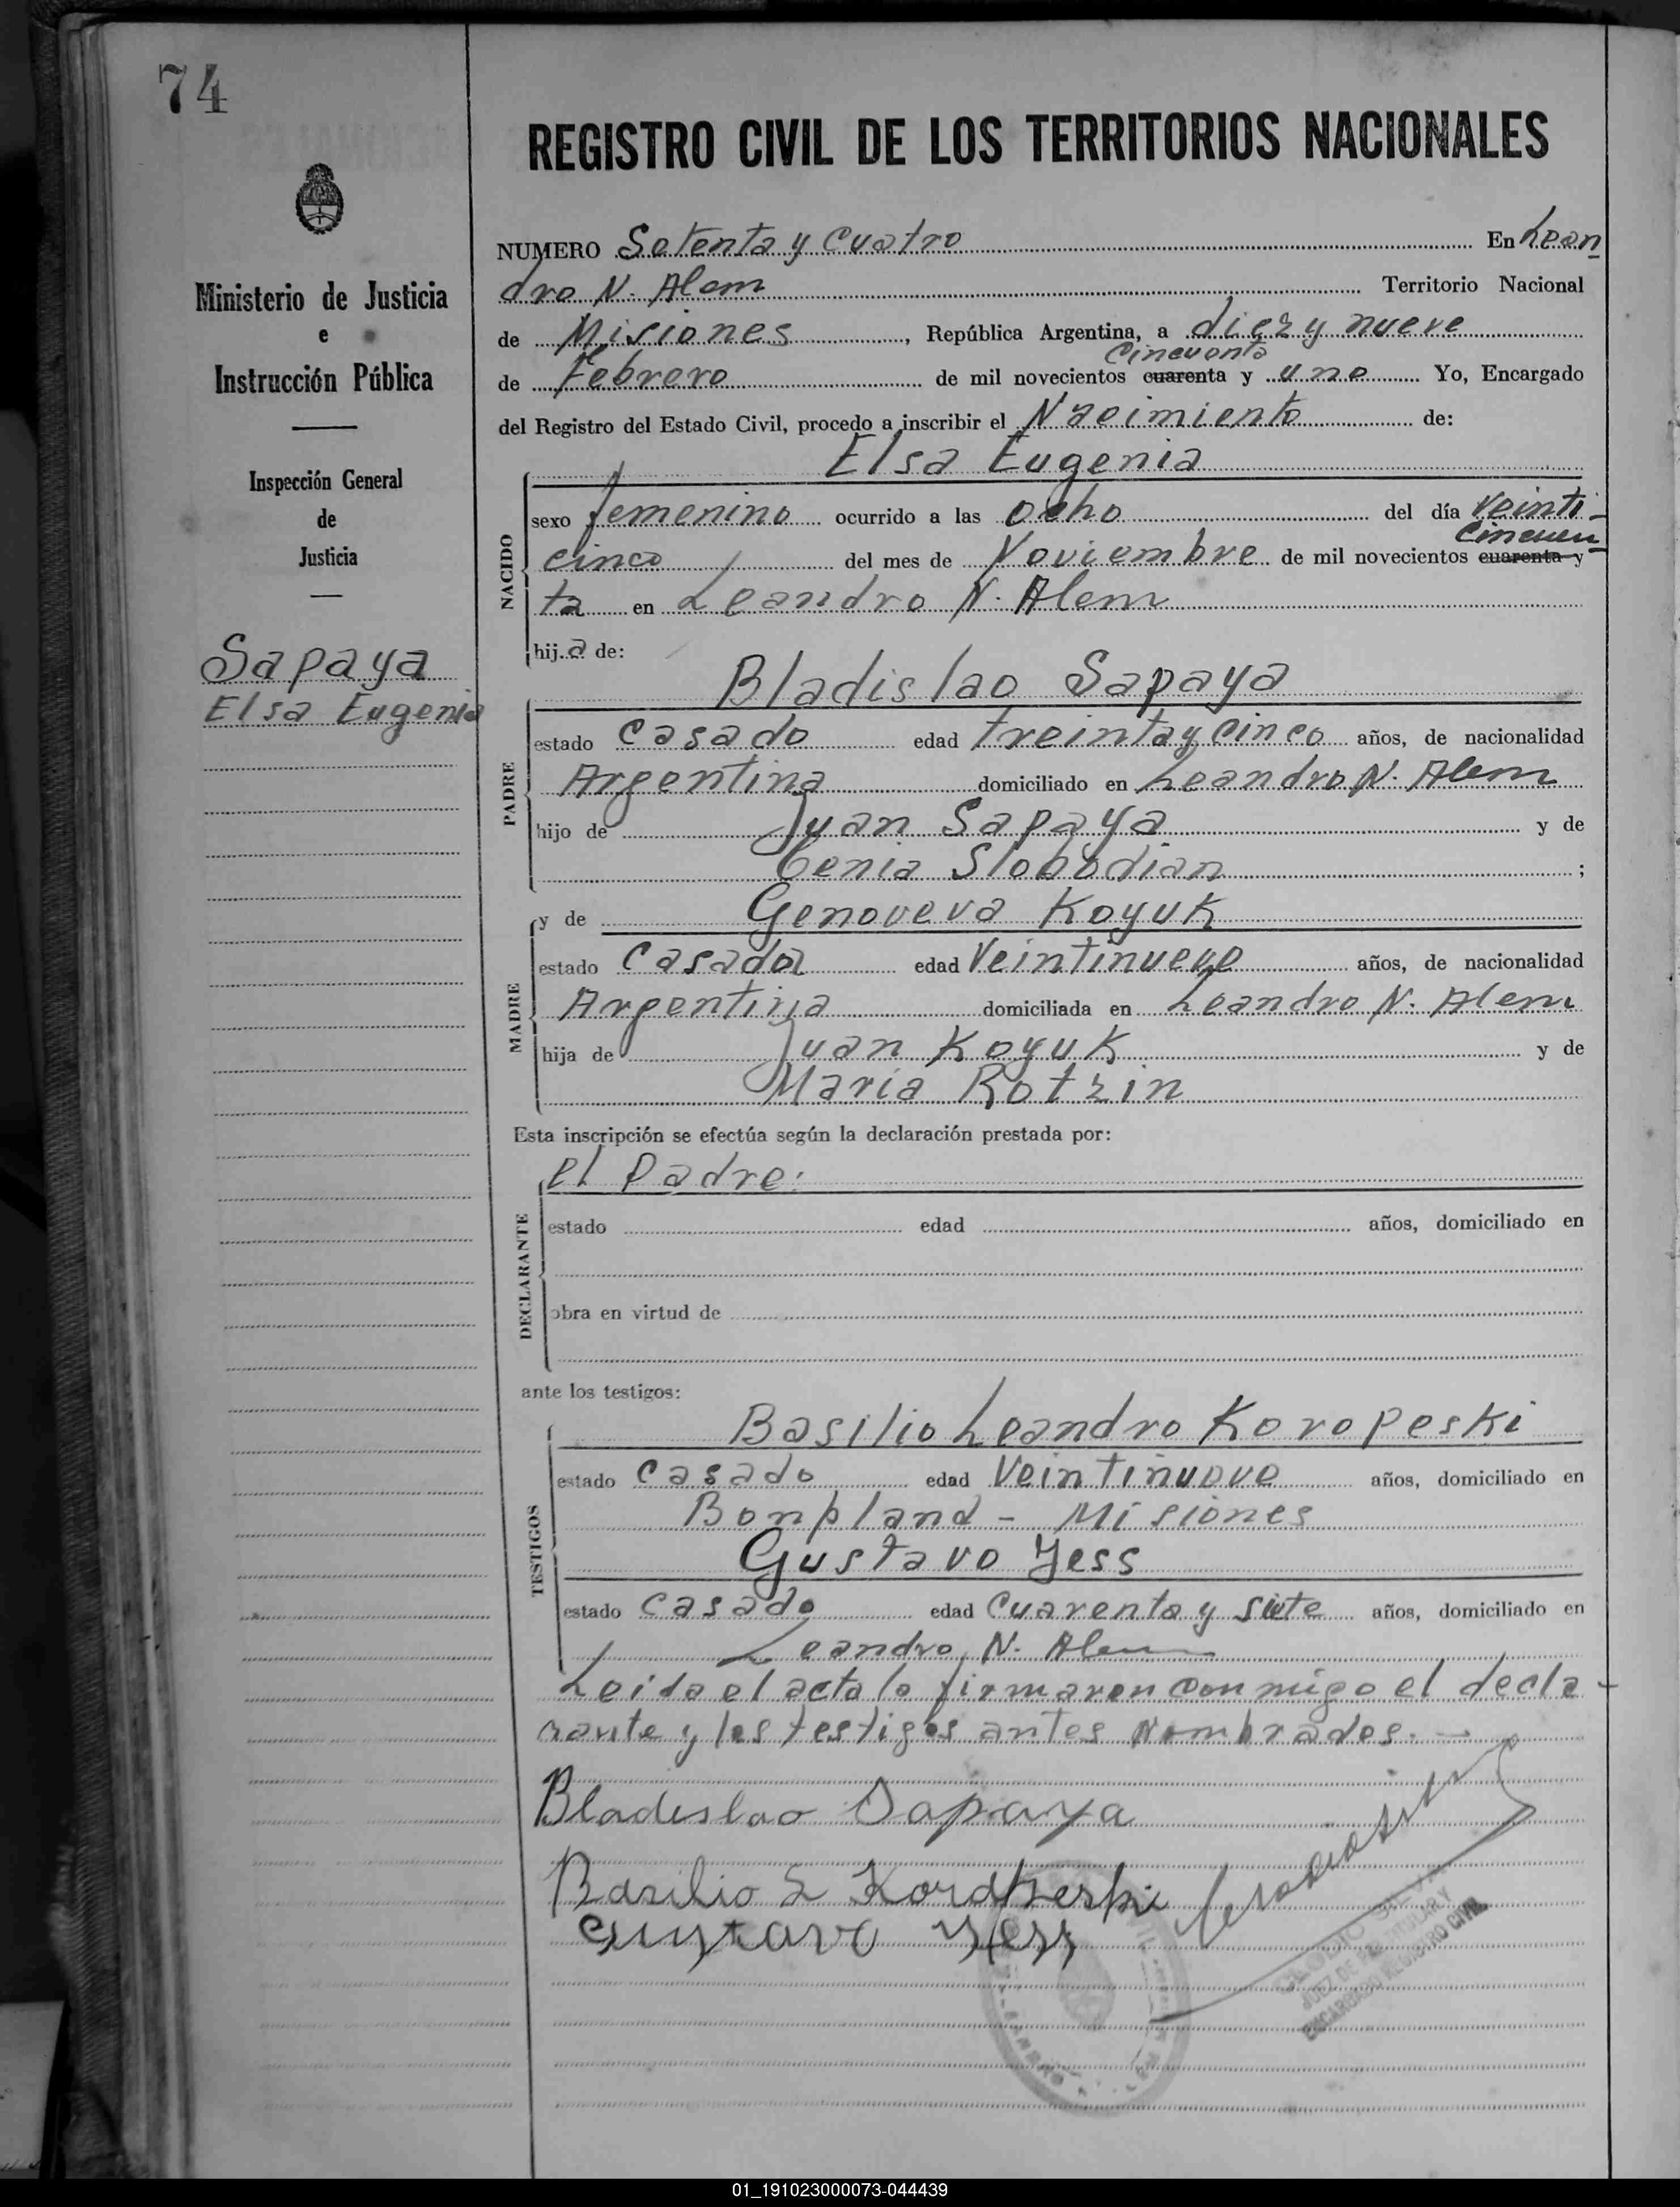 74
REGISTRO CIVIL DE LOS TERRITORIOS NACIONALES
Ministerio de Justicia
e
Instrucción Pública
Inspección General
de
Justicia
Sapaya
Elsa Eugenia
NUMERO Setenta y Cuatro En Lean
dro N. Alem Territorio Nacional
de Misiones, República Argentina, a diez y nueve
Cincuenta
de Febrero de mil novecientos cuarenta y uno Yo, Encargado
del Registro del Estado Civil, procedo a inscribir el Nacimiento de:
Elsa Eugenia
NACIDO
sexo femenino ocurrido a las ocho del día veinti-
Cincuen
cinco del mes de Noviembre de mil novecientos cuarenta y
ta en Leandro N. Alem
hija de:
Bladislao Sapaya
PADRE
estado Casado edad treinta y cinco años, de nacionalidad
Argentina domiciliado en Leandro N. Alem
hijo de Juan Sapaya y de
Cenia Slobodian;
y de Genoveva Koyuk
MADRE
estado Casada edad Veintinueve años, de nacionalidad
Argentina domiciliada en Leandro N. Alem
hija de Juan Koyuk y de
Maria Rotzin
Esta inscripción se efectúa según la declaración prestada por:
el Padre.
DECLARANTE
estado edad años, domiciliado en
obra en virtud de
ante los testigos:
Basilio Leandro Koropeski
TESTIGOS
estado Casado edad Veintinueve años, domiciliado en
Bonpland - Misiones
Gustavo Yess
estado Casado edad Cuarenta y siete años, domiciliado en
Leandro N. Alem
Leida el acta la firmaron conmigo el decla-
rante y los testigos antes nombrados.-
Bladislao Sapaya
Basilio L
Gustavo Yess
JUEZ DE PAZ TITULAR Y
ENCARGADO REGISTRO CIVIL
01_191023000073-044439